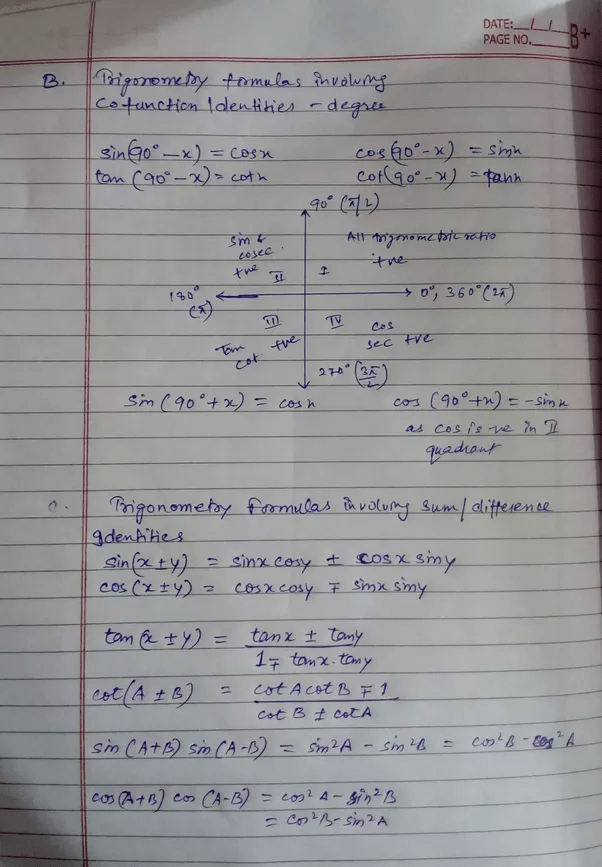 DATE: / /
PAGE NO. B+
B. Trigonometry formulas involving
Cofunction Identities - degree
sin(90° - x) = cosx cos(90° - x) = sinx
tan (90° - x) = cotx cot(90° - x) = tanx
90° (π/2)
sin & cosec. +ve II
I All trigonometric ratio +ve
180° (π)
0°, 360° (2π)
III tan cot +ve
IV cos sec +ve
270° (3π/2)
sin (90° + x) = cosx cos (90° + x) = -sinx
as cos is -ve in II
quadrant
C. Trigonometry formulas involving sum/difference
Identities
sin(x ± y) = sinx cosy ± cosx siny
cos (x ± y) = cosx cosy ∓ sinx siny
tan (x ± y) = tanx ± tany / 1 ∓ tanx.tany
cot(A ± B) = cot A cot B ∓ 1 / cot B ± cot A
sin (A+B) sin (A-B) = sin²A - sin²B = cos²B - cos²A
cos (A+B) cos (A-B) = cos²A - sin²B
= cos²B - sin²A